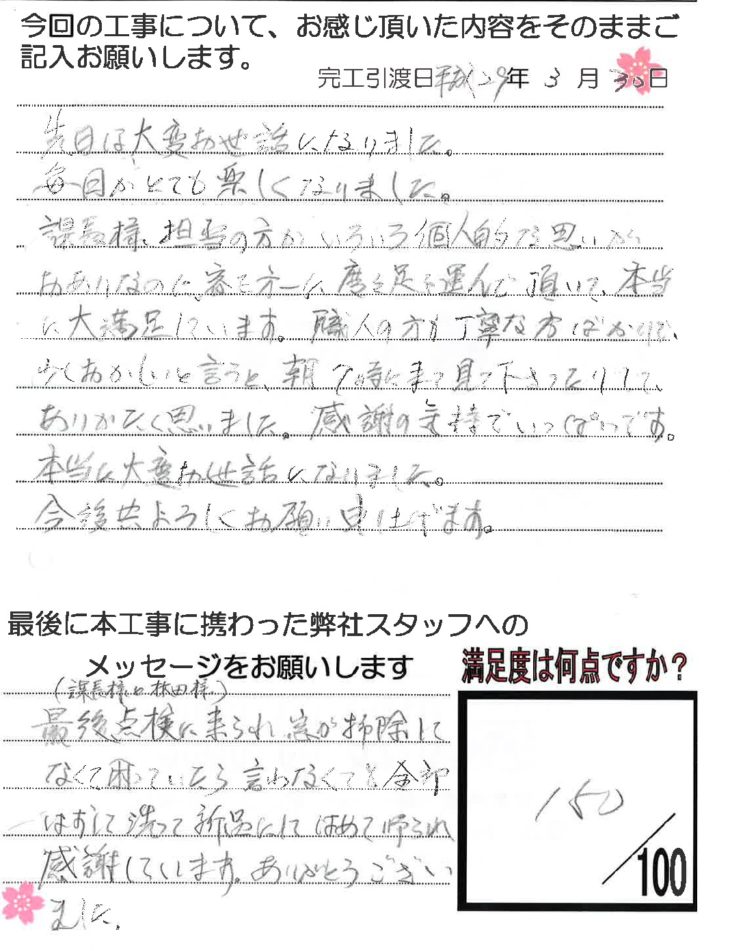 今回の工事について、お感じ頂いた内容をそのままご
記入お願いします。
完工引渡日平成29年 3 月 30日
先日は大変お世話になりました。
毎日がとても楽しくなりました。
課長様、担当の方がいろいろ個人的な思いが
おありなのに、 度々足を運んで頂いて、本当
に大満足しています。職人の方も丁寧な方ばかりで、
少しおかしいと言うと、朝7時に来て見て下さったりして、
ありがたく思いました。感謝の気持でいっぱいです。
本当に大変お世話になりました。
今後共よろしくお願い申し上げます。
最後に本工事に携わった弊社スタッフへの
メッセージをお願いします
満足度は何点ですか？
(課長様と林田様)
最後点検に来られ、窓が掃除して
なくて困っていたら言わなくても全部
はずして洗って新品にしてはめて帰られ
感謝しています。ありがとうござい
ました。
150
/100